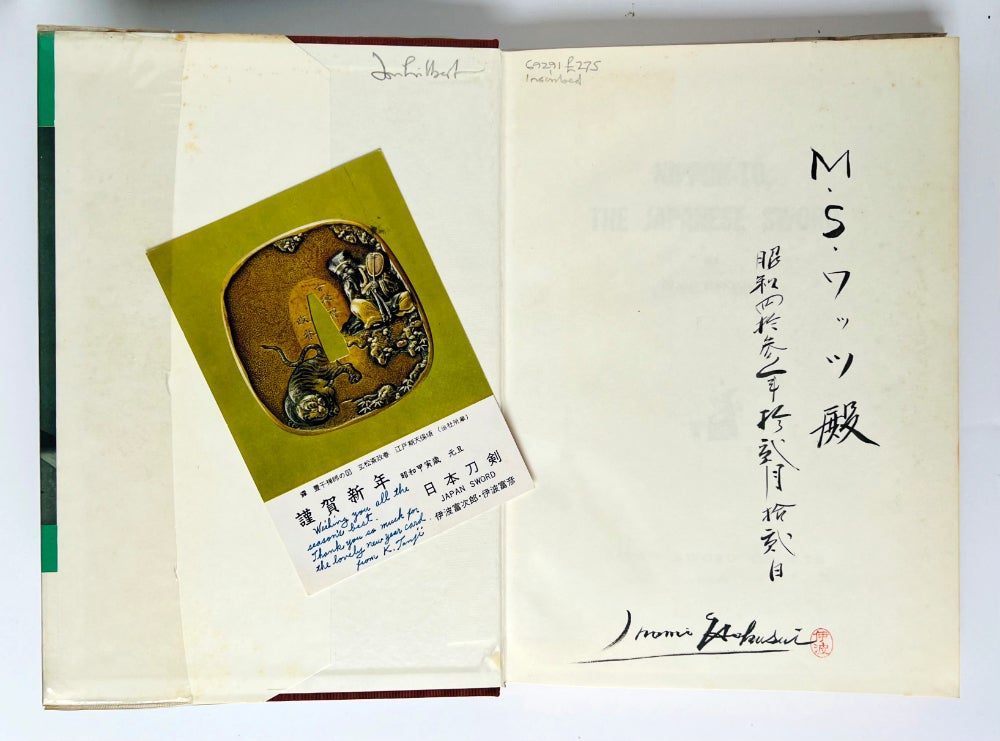 £275
Inscribed
鐔 豊干禅師の図 江戸期天保頃 (当社所蔵)
謹賀新年 昭和甲寅歳 元旦
Wishing you all the
season's best.
Thank you so much for
the lovely new year card
from K. Tanji
日本刀剣
JAPAN SWORD
伊波富次郎・伊波富彦
THE JAPANESE SWORD
M.S.ワッツ殿
昭和四拾参年拾弐月拾弐日
Inami Hakusui
伊波